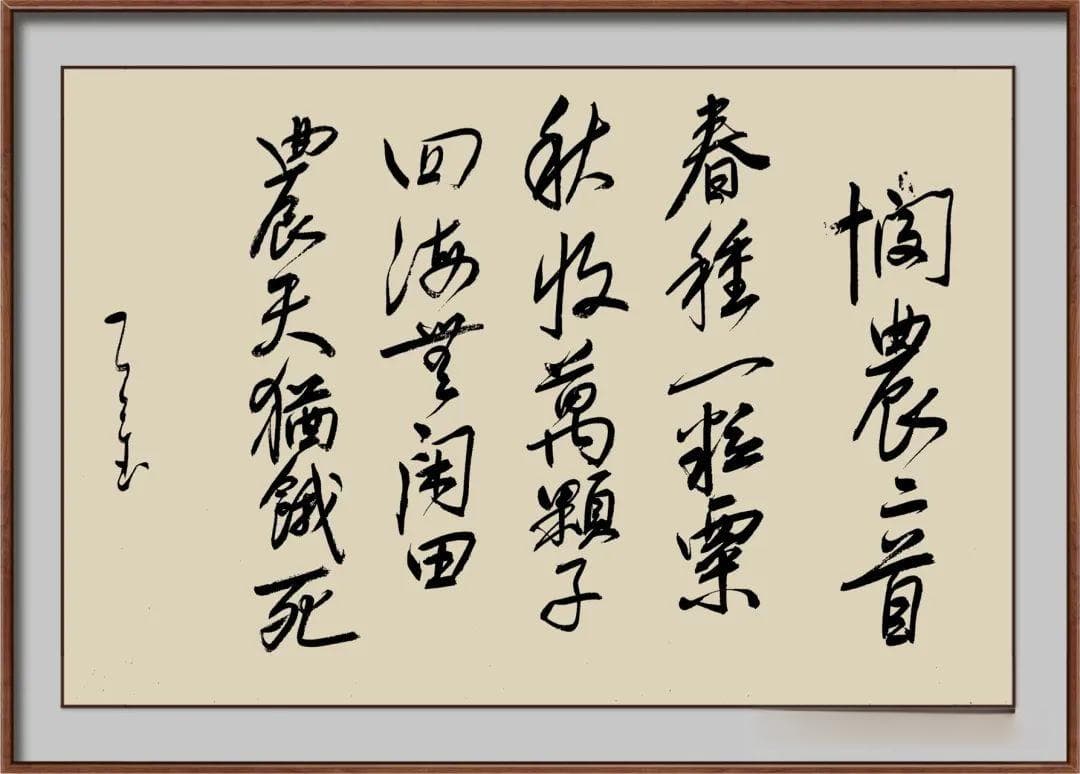 憫農二首
春種一粒粟
秋收萬顆子
四海無闲田
農夫猶餓死